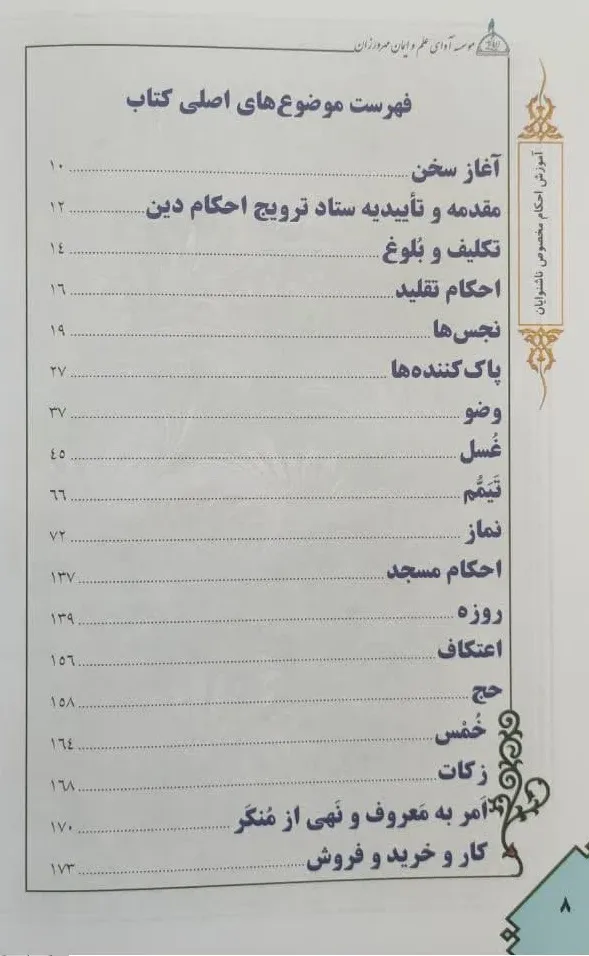 موسسه آوای علم و ایمان مهرورزان
فهرست موضوع‌های اصلی کتاب
آغاز سخن ۱۰
مقدمه و تأییدیه ستاد ترویج احکام دین ۱۲
تکلیف و بُلوغ ۱٤
احکام تقلید ۱٦
نجس‌ها ۱۹
پاک‌کننده‌ها ۲۷
وضو ۳۷
غُسل ٤٥
تَیَمُّم ٦٦
نماز ۷۲
احکام مسجد ۱۳۷
روزه ۱۳۹
اعتکاف ۱٥٦
حج ۱٥۸
خُمْس ۱٦٤
زکات ۱٦۸
اَمر به مَعروف و نَهی از مُنکَر ۱۷۰
کار و خرید و فروش ۱۷۳
آموزش احکام مخصوص ناشنوایان
۸